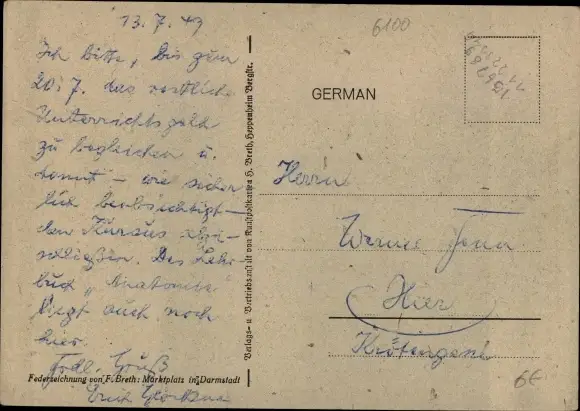 13.7.49
Ich bitte, bis zum
20.7. das restliche
Unterrichtsgeld
zu begleichen u.
damit – wie sicher
lich beabsichtigt –
den Kursus abzu-
schließen. Das Lehr
buch „Anatomie"
liegt auch noch
hier.
Frdl. Gruß
Erich
Federzeichnung von F. Breth: Marktplatz in Darmstadt
Verlags- u. Vertriebsanstalt von Kunstpostkarten H. Breth, Heppenheim Bergstr.
6100
GERMAN
Herrn
Werner
Hier
6€